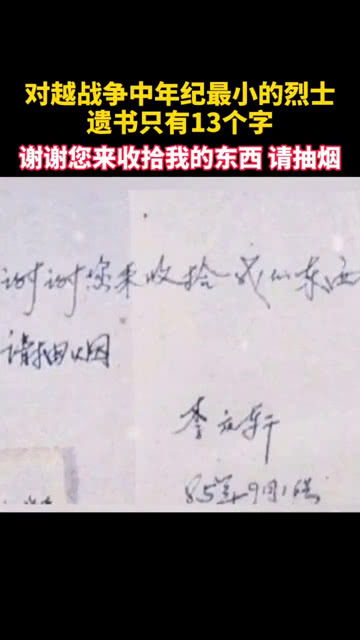 对越战争中年纪最小的烈士
遗书只有13个字
谢谢您来收拾我的东西 请抽烟
谢谢您来收拾我的东西
请抽烟
85年9月1日